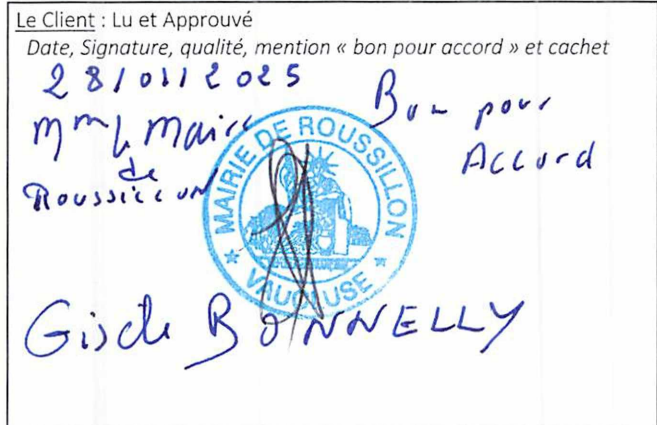 Le Client : Lu et Approuvé
Date, Signature, qualité, mention « bon pour accord » et cachet
28/01/2025
Bon pour
Accord
Mme le Maire
de
Roussillon
MAIRIE DE ROUSSILLON
VAUCLUSE
Gisèle BONNELLY